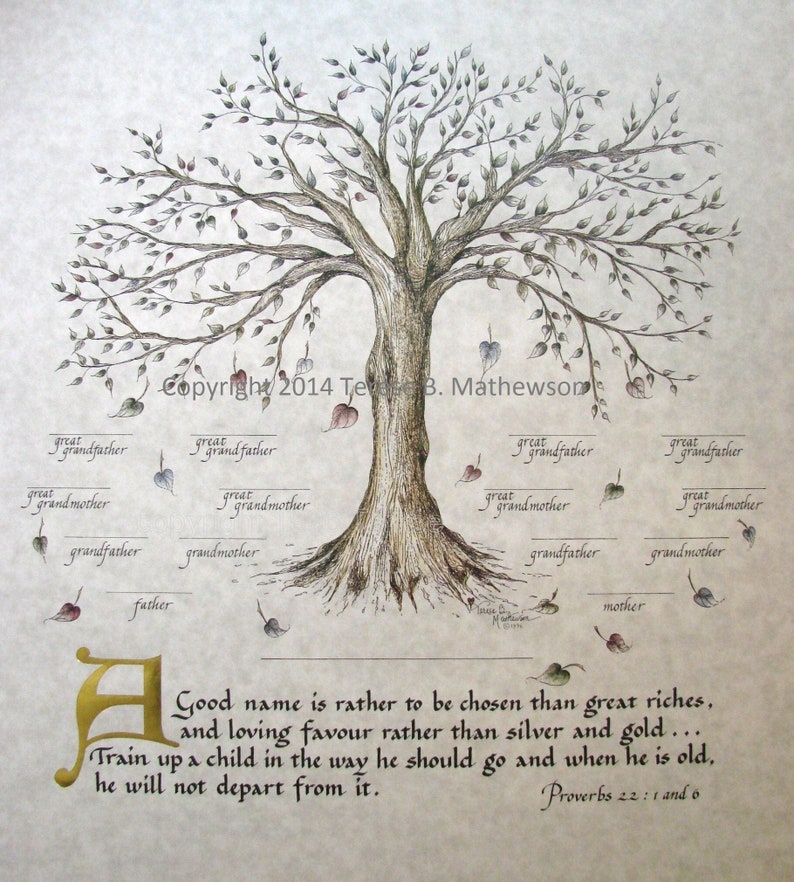 Copyright 2014 Terese B. Mathewson
great grandfather
great grandfather
great grandfather
great grandfather
great grandmother
great grandmother
great grandmother
great grandmother
grandfather
grandmother
grandfather
grandmother
father
mother
Terese B.
Mathewson
©1996
A Good name is rather to be chosen than great riches,
and loving favour rather than silver and gold...
Train up a child in the way he should go and when he is old,
he will not depart from it.
Proverbs 22:1 and 6